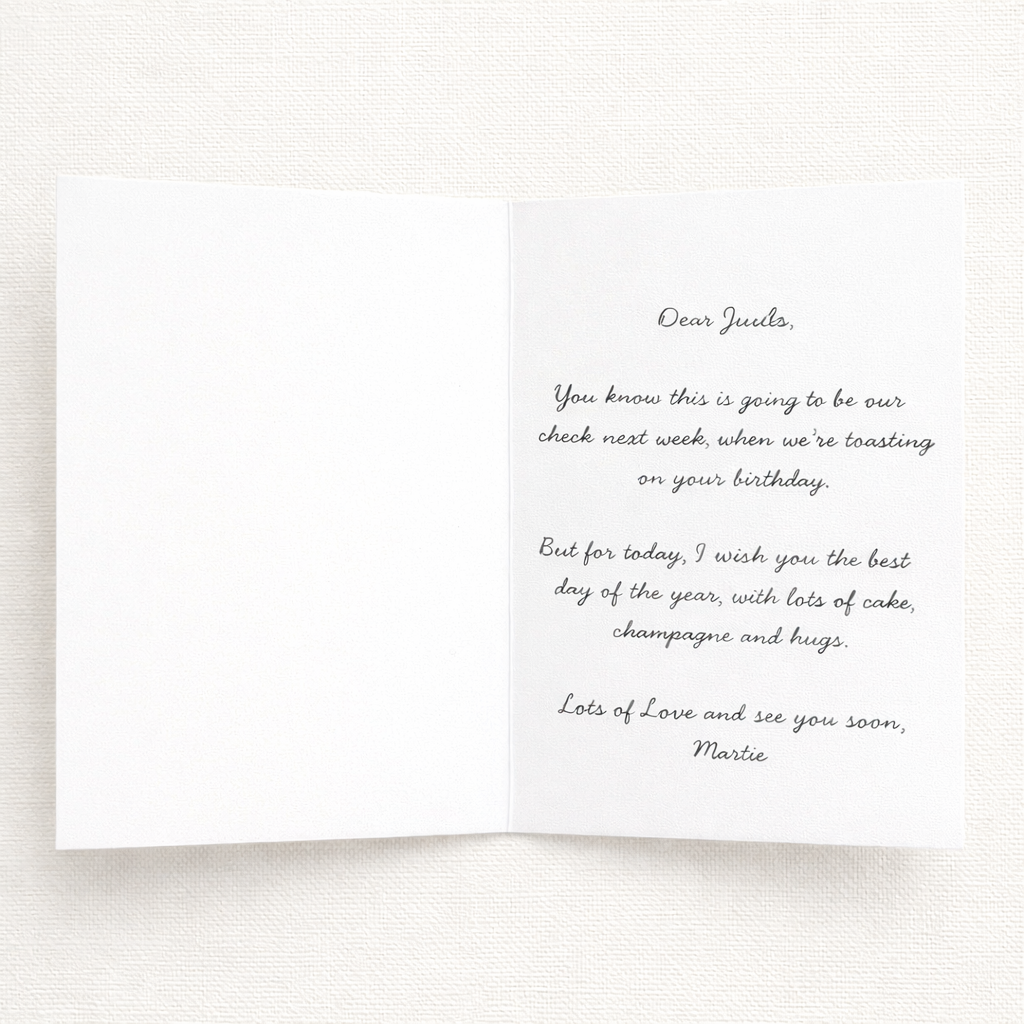 Dear Juuls,
You know this is going to be our
check next week, when we're toasting
on your birthday.
But for today, I wish you the best
day of the year, with lots of cake,
champagne and hugs.
Lots of Love and see you soon,
Martie